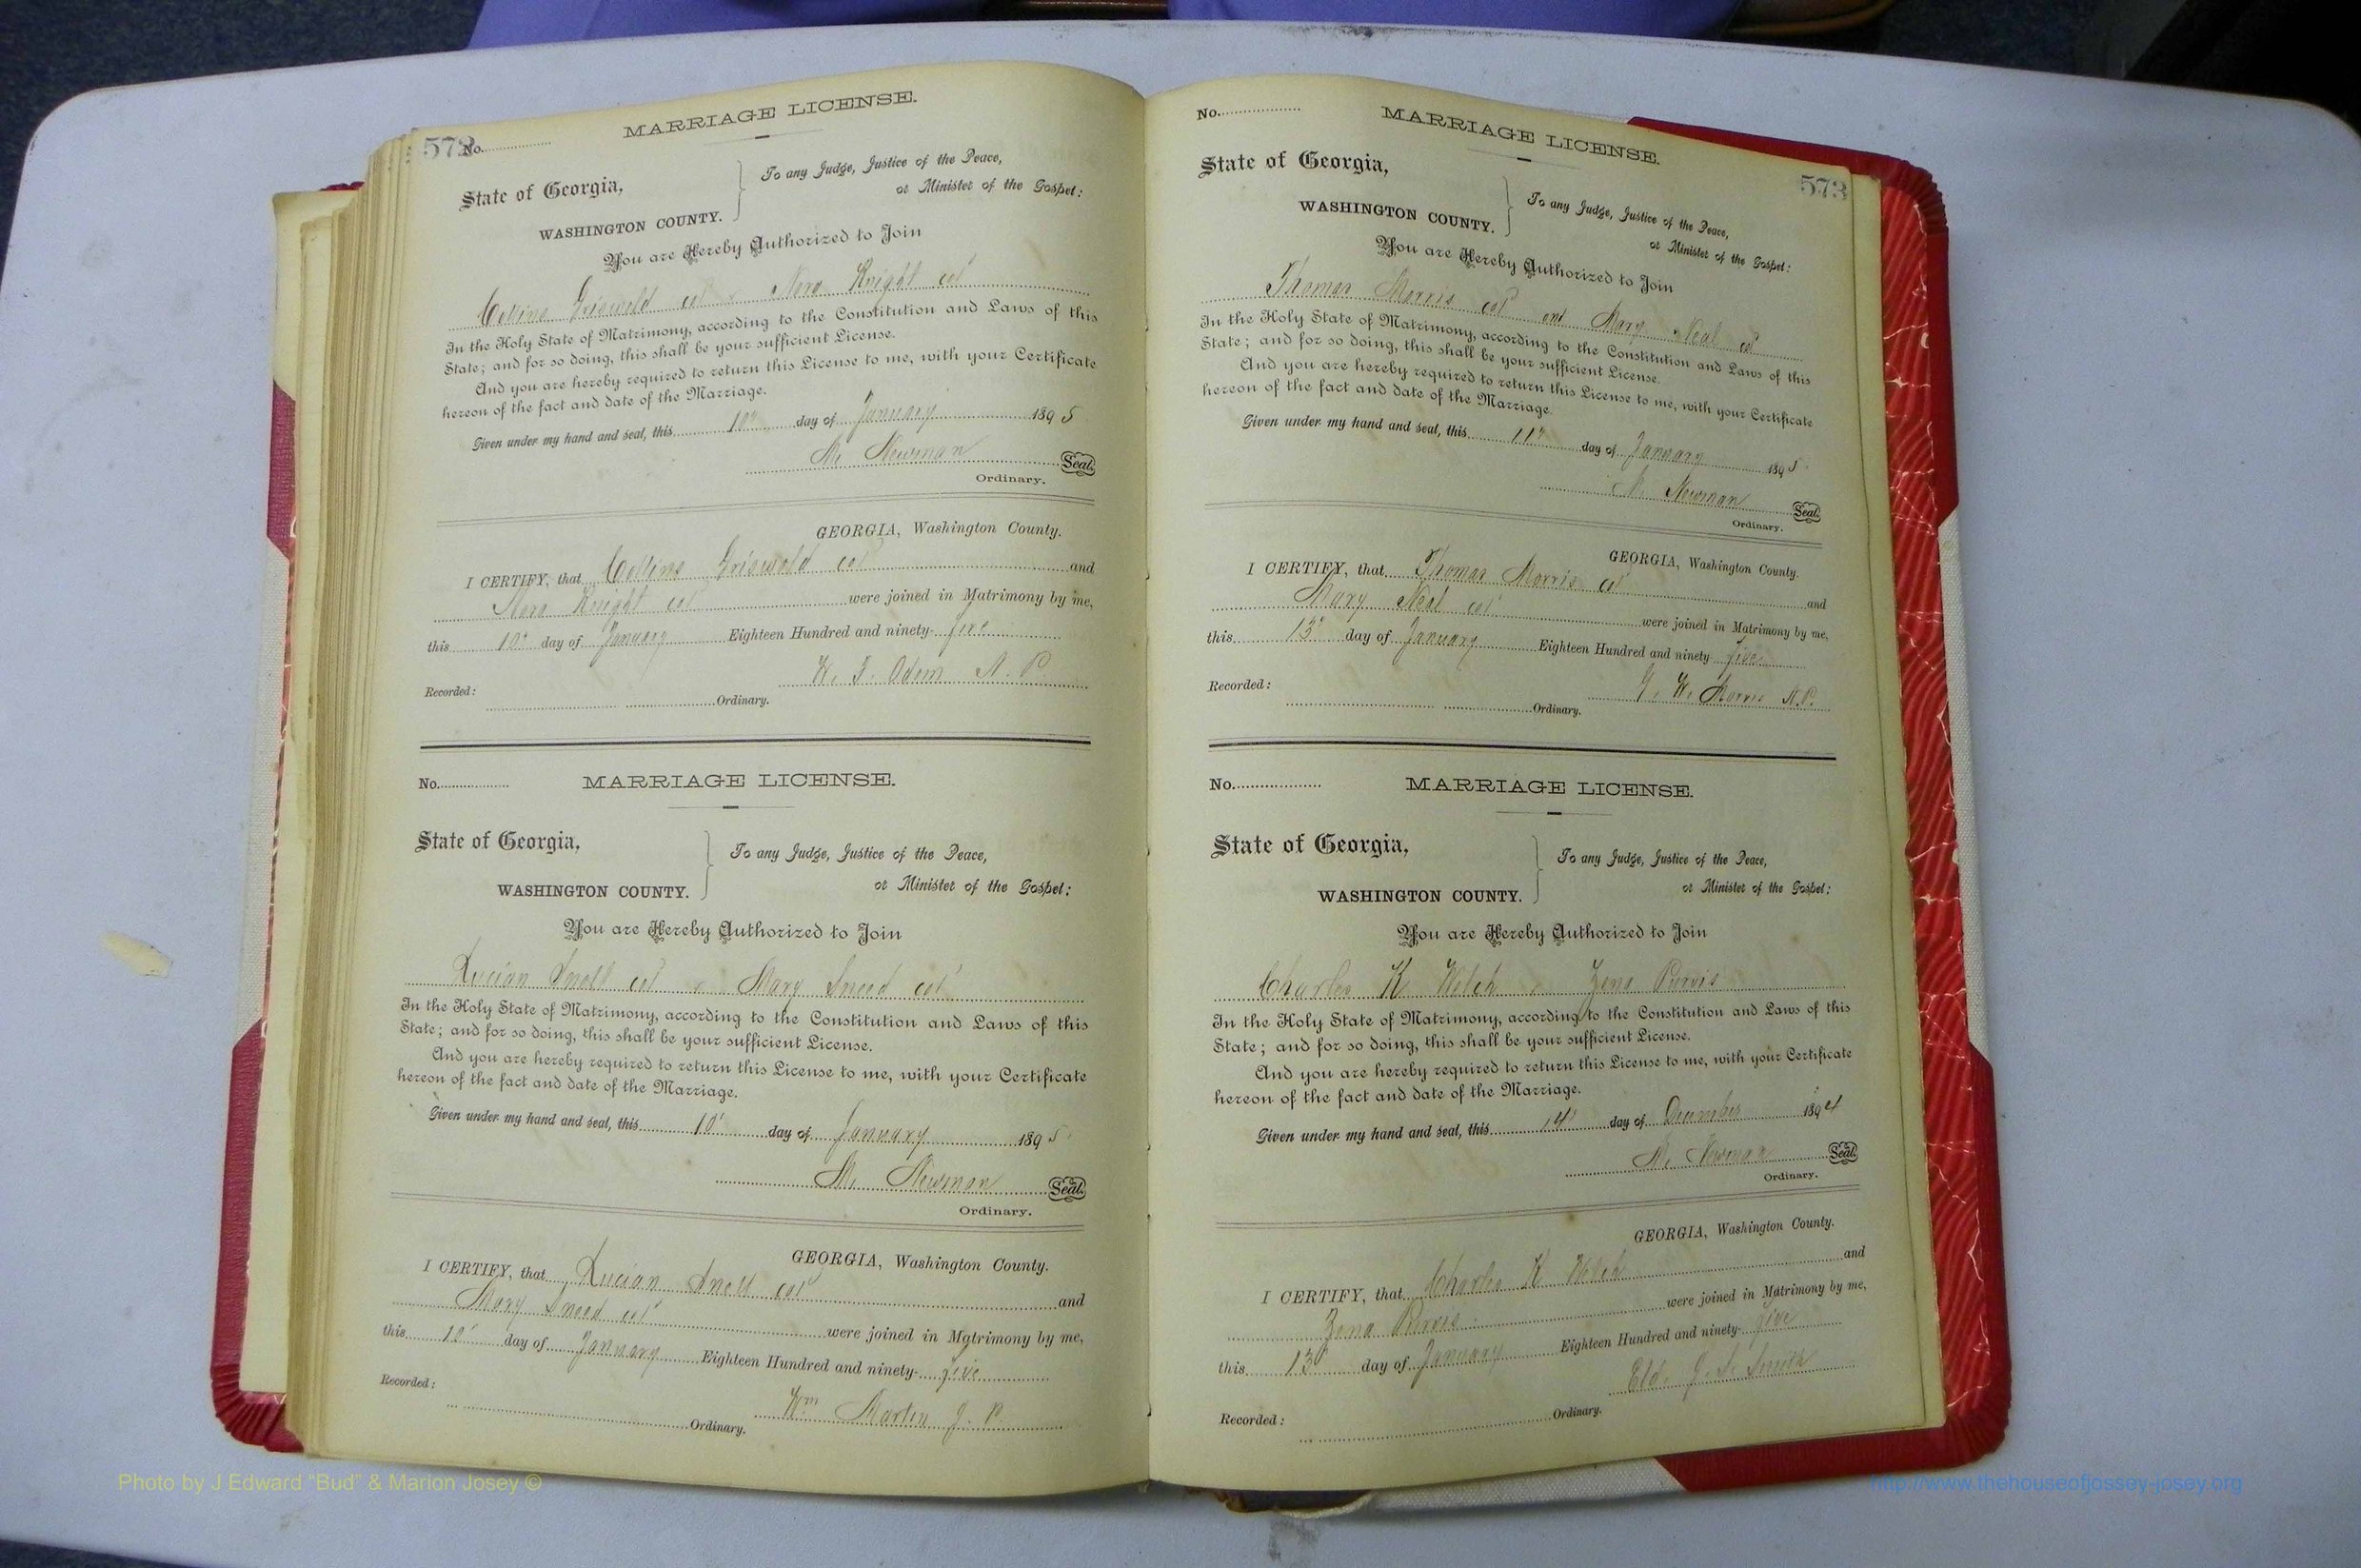 572
No.
MARRIAGE LICENSE.
State of Georgia,
WASHINGTON COUNTY.
To any Judge, Justice of the Peace,
or Minister of the Gospel:
You are Hereby Authorized to Join
Collins Griswold col & Nora Knight col
In the Holy State of Matrimony, according to the Constitution and Laws of this
State; and for so doing, this shall be your sufficient License.
And you are hereby required to return this License to me, with your Certificate
hereon of the fact and date of the Marriage.
Given under my hand and seal, this 10" day of January 1895
M. Newman
Seal.
Ordinary.
GEORGIA, Washington County.
I CERTIFY, that Collins Griswold col and
Nora Knight col were joined in Matrimony by me,
this 10" day of January Eighteen Hundred and ninety-five
W. J. Odom N. P.
Recorded: Ordinary.
No.
MARRIAGE LICENSE.
State of Georgia,
WASHINGTON COUNTY.
To any Judge, Justice of the Peace,
or Minister of the Gospel:
You are Hereby Authorized to Join
Lucian Snell col & Mary Sneed col
In the Holy State of Matrimony, according to the Constitution and Laws of this
State; and for so doing, this shall be your sufficient License.
And you are hereby required to return this License to me, with your Certificate
hereon of the fact and date of the Marriage.
Given under my hand and seal, this 10" day of January 1895
M. Newman
Seal.
Ordinary.
GEORGIA, Washington County.
I CERTIFY, that Lucian Snell col and
Mary Sneed col were joined in Matrimony by me,
this 10" day of January Eighteen Hundred and ninety-five
Wm Martin J. P.
Recorded: Ordinary.
No.
MARRIAGE LICENSE.
573
State of Georgia,
WASHINGTON COUNTY.
To any Judge, Justice of the Peace,
or Minister of the Gospel:
You are Hereby Authorized to Join
Thomas Morris col and Mary Neal col
In the Holy State of Matrimony, according to the Constitution and Laws of this
State; and for so doing, this shall be your sufficient License.
And you are hereby required to return this License to me, with your Certificate
hereon of the fact and date of the Marriage.
Given under my hand and seal, this 11" day of January 1895
M. Newman
Seal.
Ordinary.
GEORGIA, Washington County.
I CERTIFY, that Thomas Morris col and
Mary Neal col were joined in Matrimony by me,
this 13" day of January Eighteen Hundred and ninety-five
W. Morris N.P.
Recorded: Ordinary.
No.
MARRIAGE LICENSE.
State of Georgia,
WASHINGTON COUNTY.
To any Judge, Justice of the Peace,
or Minister of the Gospel:
You are Hereby Authorized to Join
Charles K Welch & Zena Purvis
In the Holy State of Matrimony, according to the Constitution and Laws of this
State; and for so doing, this shall be your sufficient License.
And you are hereby required to return this License to me, with your Certificate
hereon of the fact and date of the Marriage.
Given under my hand and seal, this 14" day of December 1894
M. Newman
Seal.
Ordinary.
GEORGIA, Washington County.
I CERTIFY, that Charles K Welch and
Zena Purvis were joined in Matrimony by me,
this 13" day of January Eighteen Hundred and ninety-five
Eld. Smith
Recorded: Ordinary.
Photo by J Edward “Bud” & Marion Josey ©
http://www.thehouseofjossey-josey.org